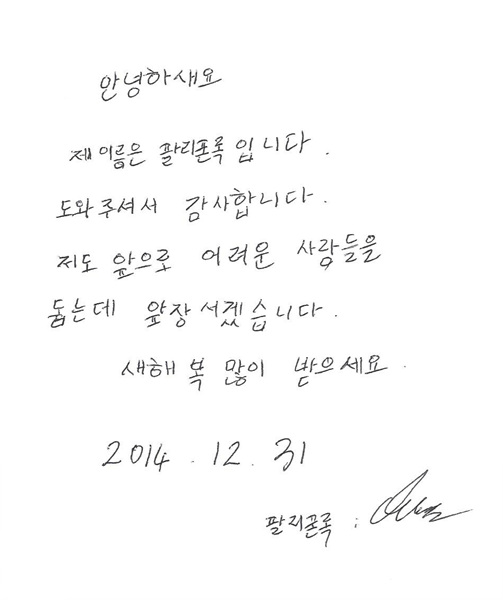 안녕하새요
제 이름은 팔리폰록 입니다.
도와주셔서 감사합니다.
저도 앞으로 어려운 사람들을
돕는데 앞장 서겠습니다.
새해 복 많이 받으세요.
2014. 12. 31
팔리꼰록 :